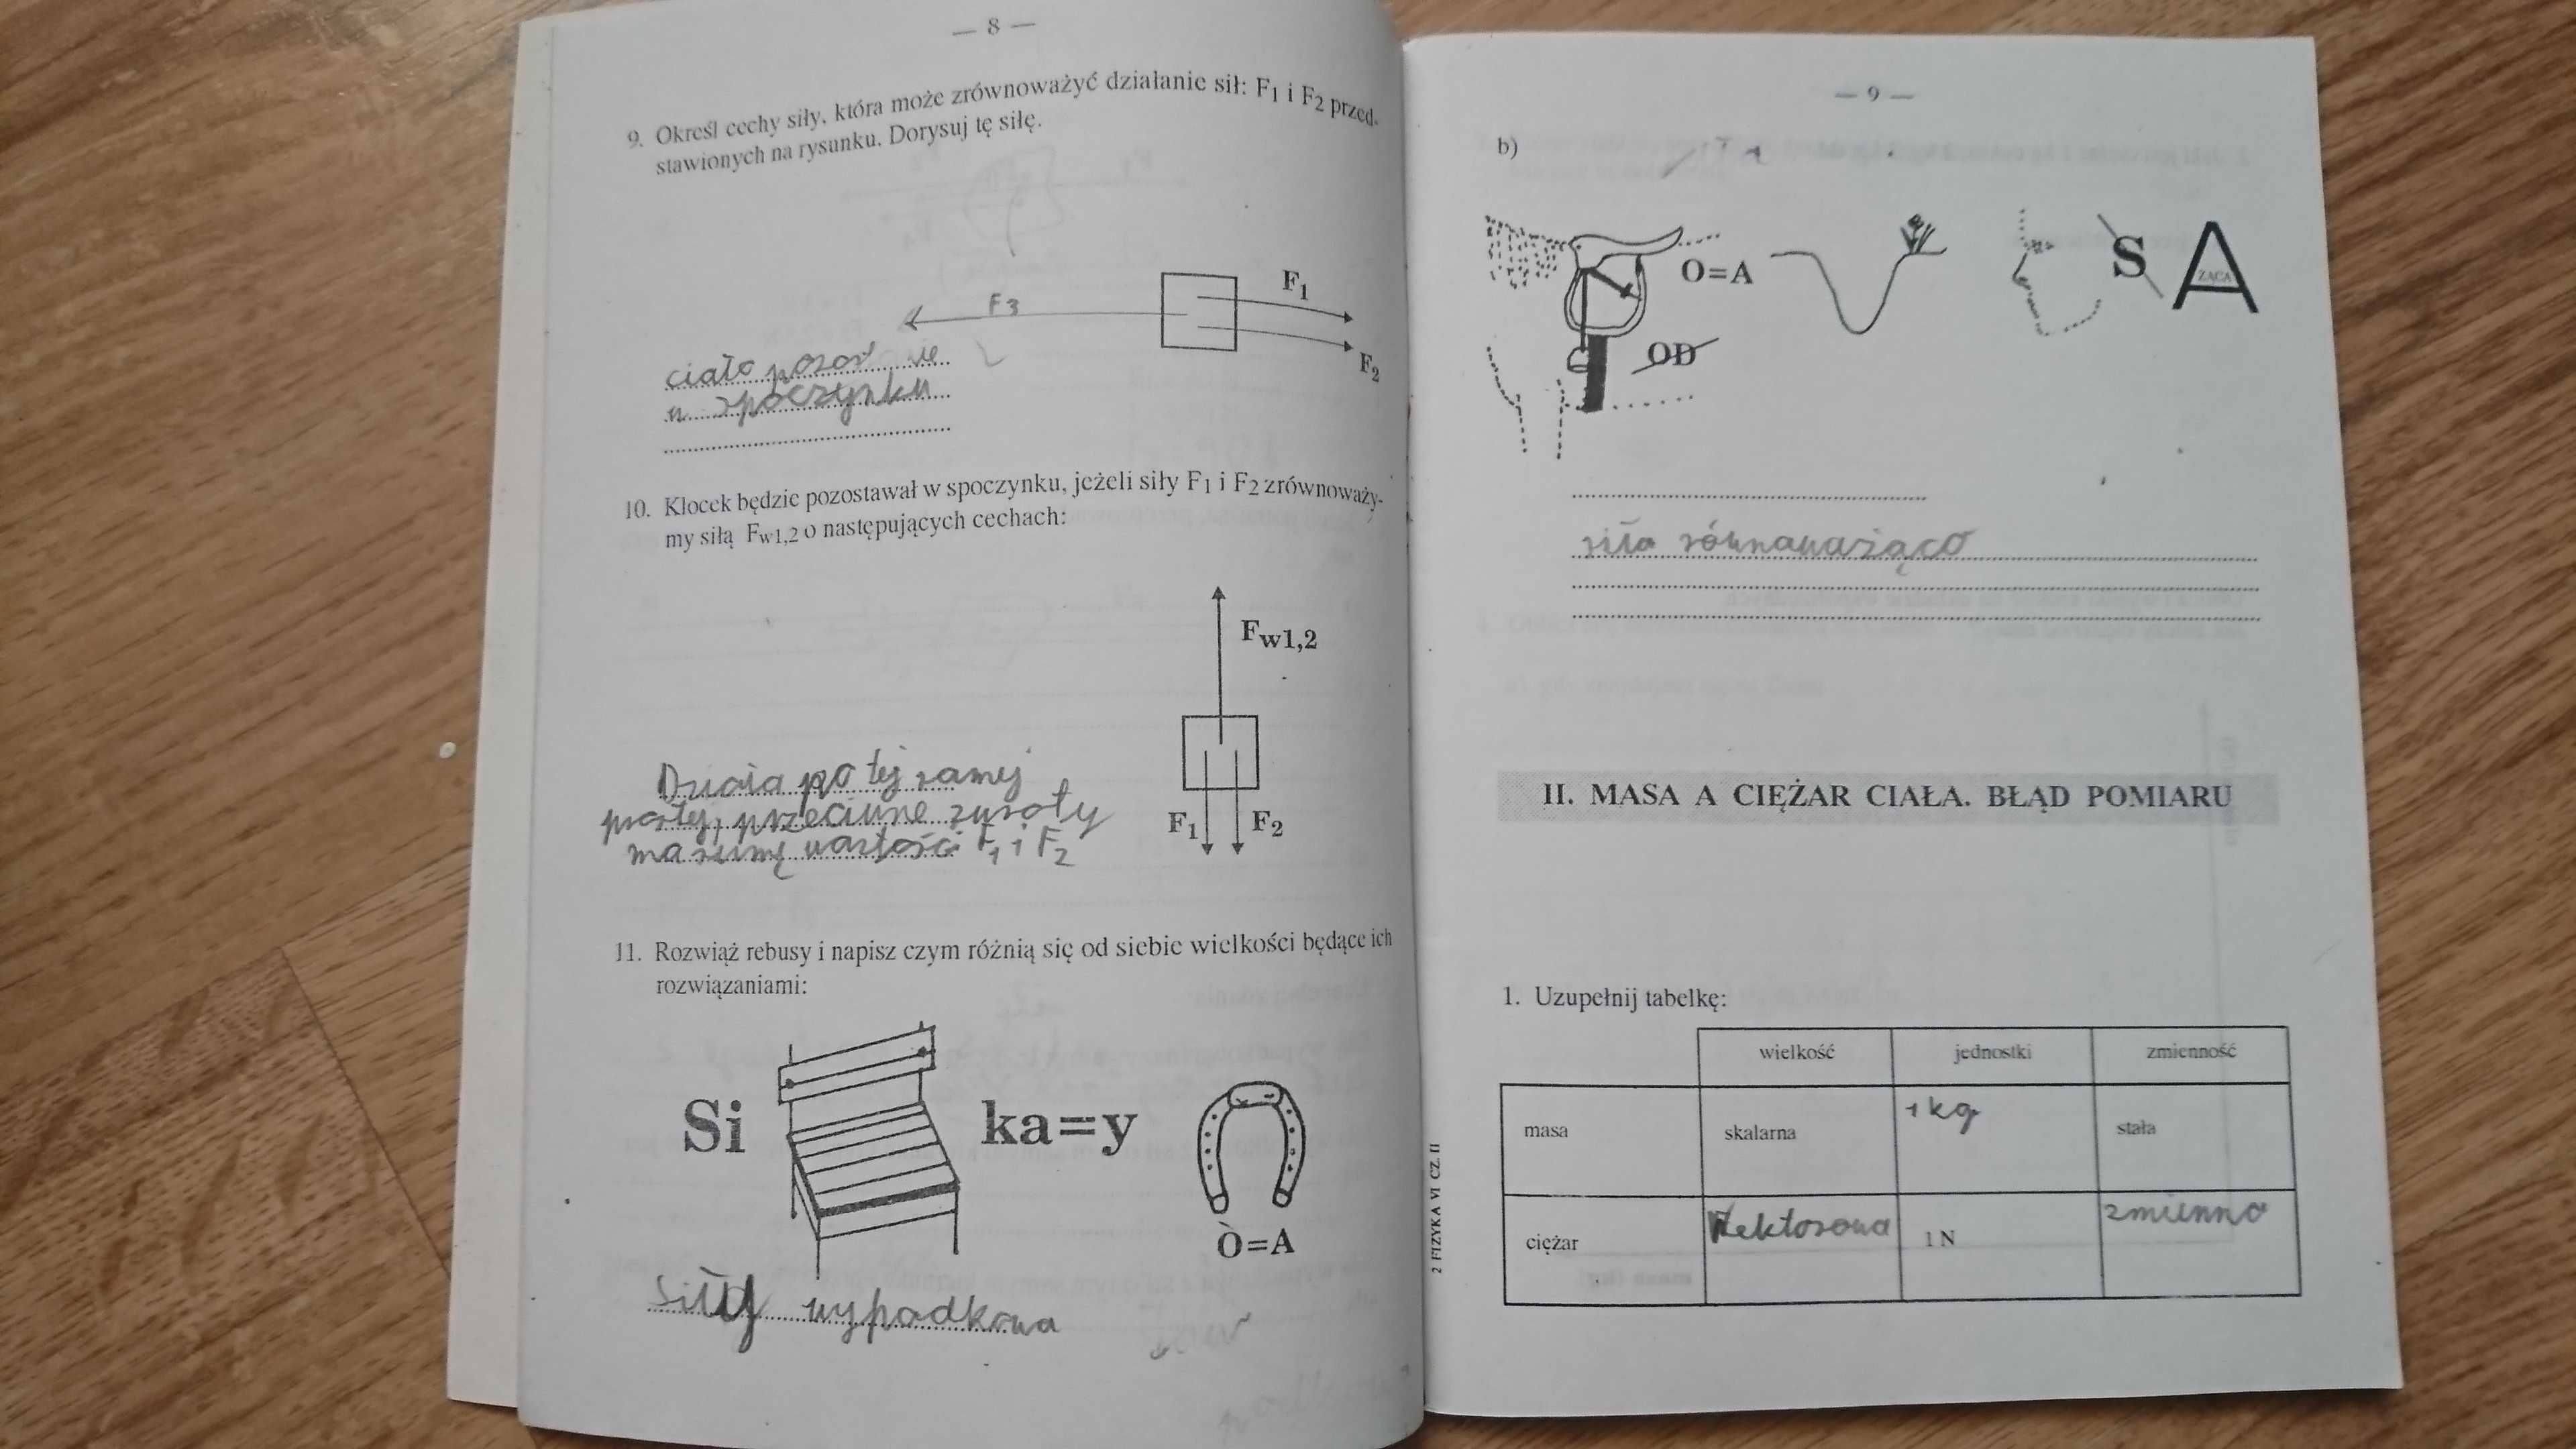 — 8 —
9. Określ cechy siły, która może zrównoważyć działanie sił: F1 i F2 przed-
stawionych na rysunku. Dorysuj tę siłę.
F1
F3
F2
ciało pozost nie
w spoczynku
10. Klocek będzie pozostawał w spoczynku, jeżeli siły F1 i F2 zrównoważy-
my siłą Fw1,2 o następujących cechach:
Fw1,2
Działa po tej samej
prostej, przeciwne zwroty
ma sumę wartości F1 i F2
F1 F2
11. Rozwiąż rebusy i napisz czym różnią się od siebie wielkości będące ich
rozwiązaniami:
Si ka=y
Ò=A
siły wypadkowa
— 9 —
b)
O=A S A
ŻĄCA
OD
siła równoważąca
II. MASA A CIĘŻAR CIAŁA. BŁĄD POMIARU
1. Uzupełnij tabelkę:
wielkość jednostki zmienność
masa skalarna 1 kg stała
ciężar Wektorowa 1 N zmienna
2 FIZYKA VI CZ. II